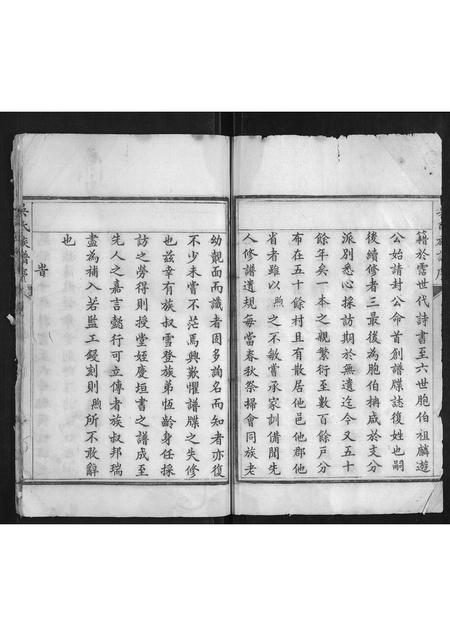 籍於霑世代詩書至六世胞伯祖麟遊
公始請封公命首創譜牒誌復姓也嗣
後續修者三最後為胞伯柟咸於支分
派別悉心採訪期於無遺迄今又五十
餘年矣一本之親繁衍至數百餘戶分
布在五十餘村且有散居他邑他郡他
省者雖以煦之不敏嘗承家訓備聞先
人修譜遺規每當春秋祭掃會同族老
幼覿面而識者固多詢名而知者亦復
不少未嘗不茫焉興歎懼譜牒之失修
也茲幸有族叔雲登族弟恆齡身任採
訪之勞得則授堂姪慶垣書之譜成至
先人之嘉言懿行可立傳者族叔邦瑞
盡為補入若監工鋟刻則煦所不敢辭
也
旹
吳氏族譜序